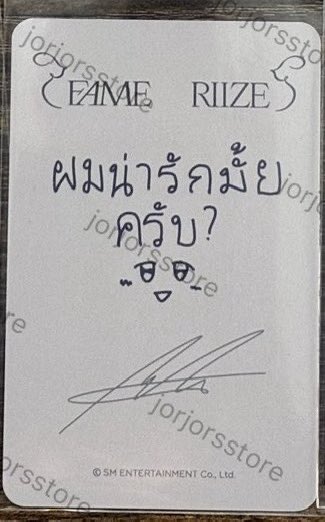 FAME RIIZE
ผมน่ารักมั้ย
ครับ?
© SM ENTERTAINMENT Co., Ltd.
jorjorsstore
jorjorsstore
jorjorsstore
jorjorsstore
jorjorsstore